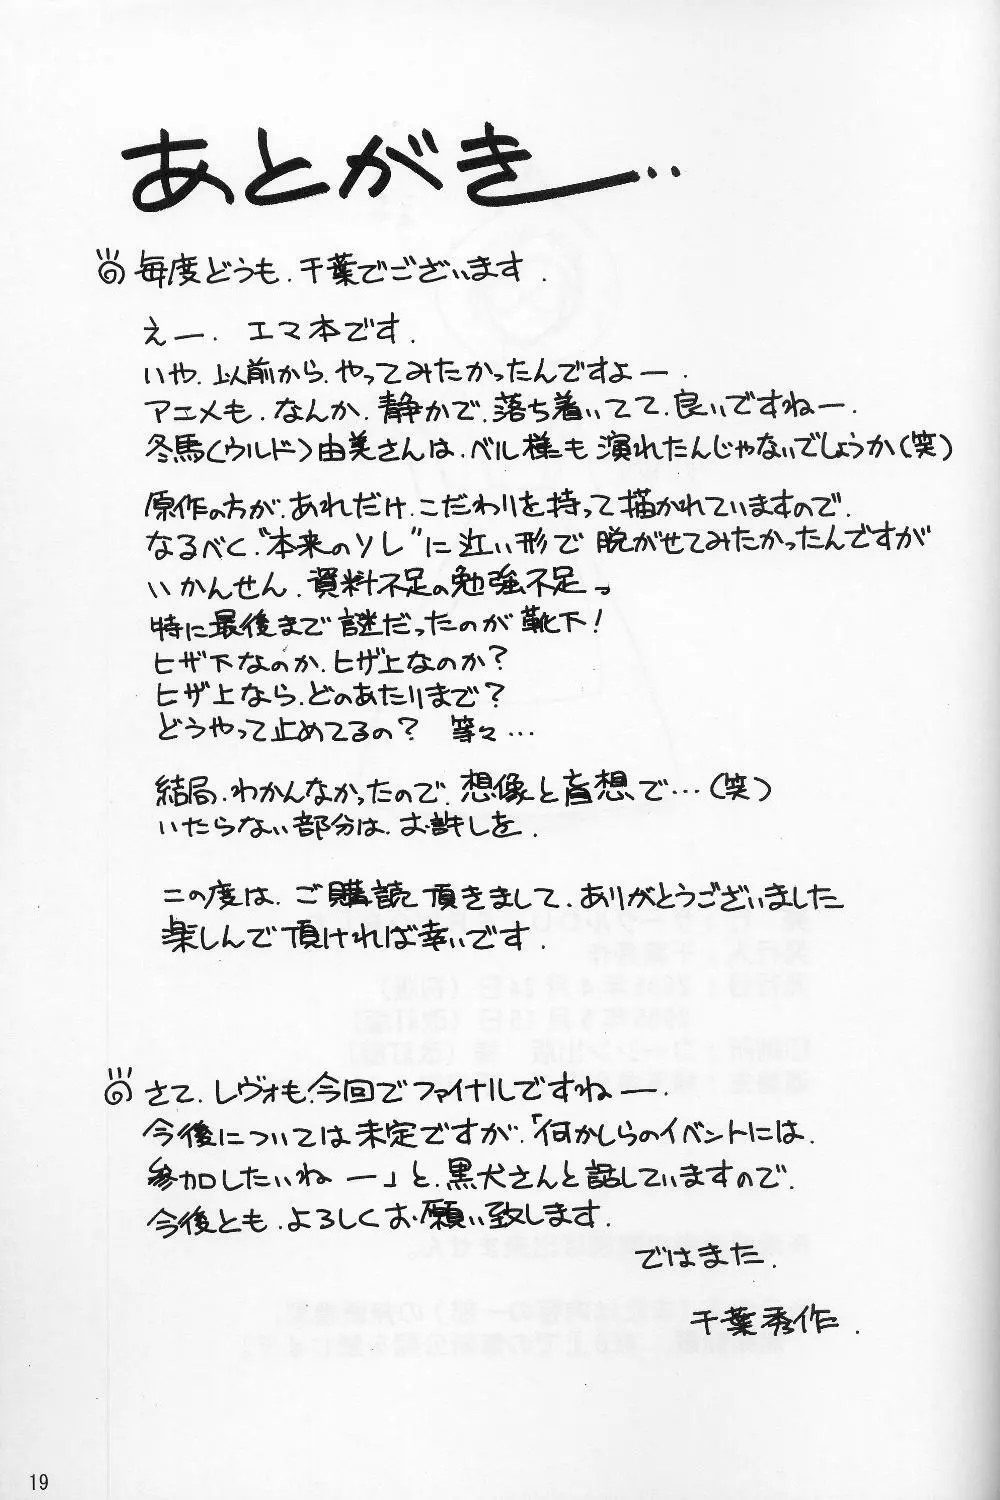 あとがき―‥
毎度どうも.千葉でございます.
えー.エマ本です.
いや.以前から.やってみたかったんですよー.
アニメも.なんか.静かで.落ち着いてて.良いですねー.
冬馬(ウルド)由美さんは.ベル様も演れたんじゃないでしょうか(笑)
原作の方が.あれだけ.こだわりを持って描かれていますので.
なるべく.“本来のソレ”に近い形で脱がせてみたかったんですが
いかんせん.資料不足の勉強不足っ
特に最後まで謎だったのが靴下!
ヒザ下なのか.ヒザ上なのか?
ヒザ上なら.どのあたりまで?
どうやって止めてるの? 等々…
結局.わかんなかったので.想像と盲想で…(笑)
いたらない部分は.お許しを.
この度は.ご購読頂きまして.ありがとうございました
楽しんで頂ければ幸いです.
さて.レヴォも.今回でファイナルですねー.
今後については未定ですが.「何かしらのイベントには.
参加したいねー」と.黒犬さんと話していますので.
今後とも.よろしくお願い致します.
ではまた.
千葉秀作.
19